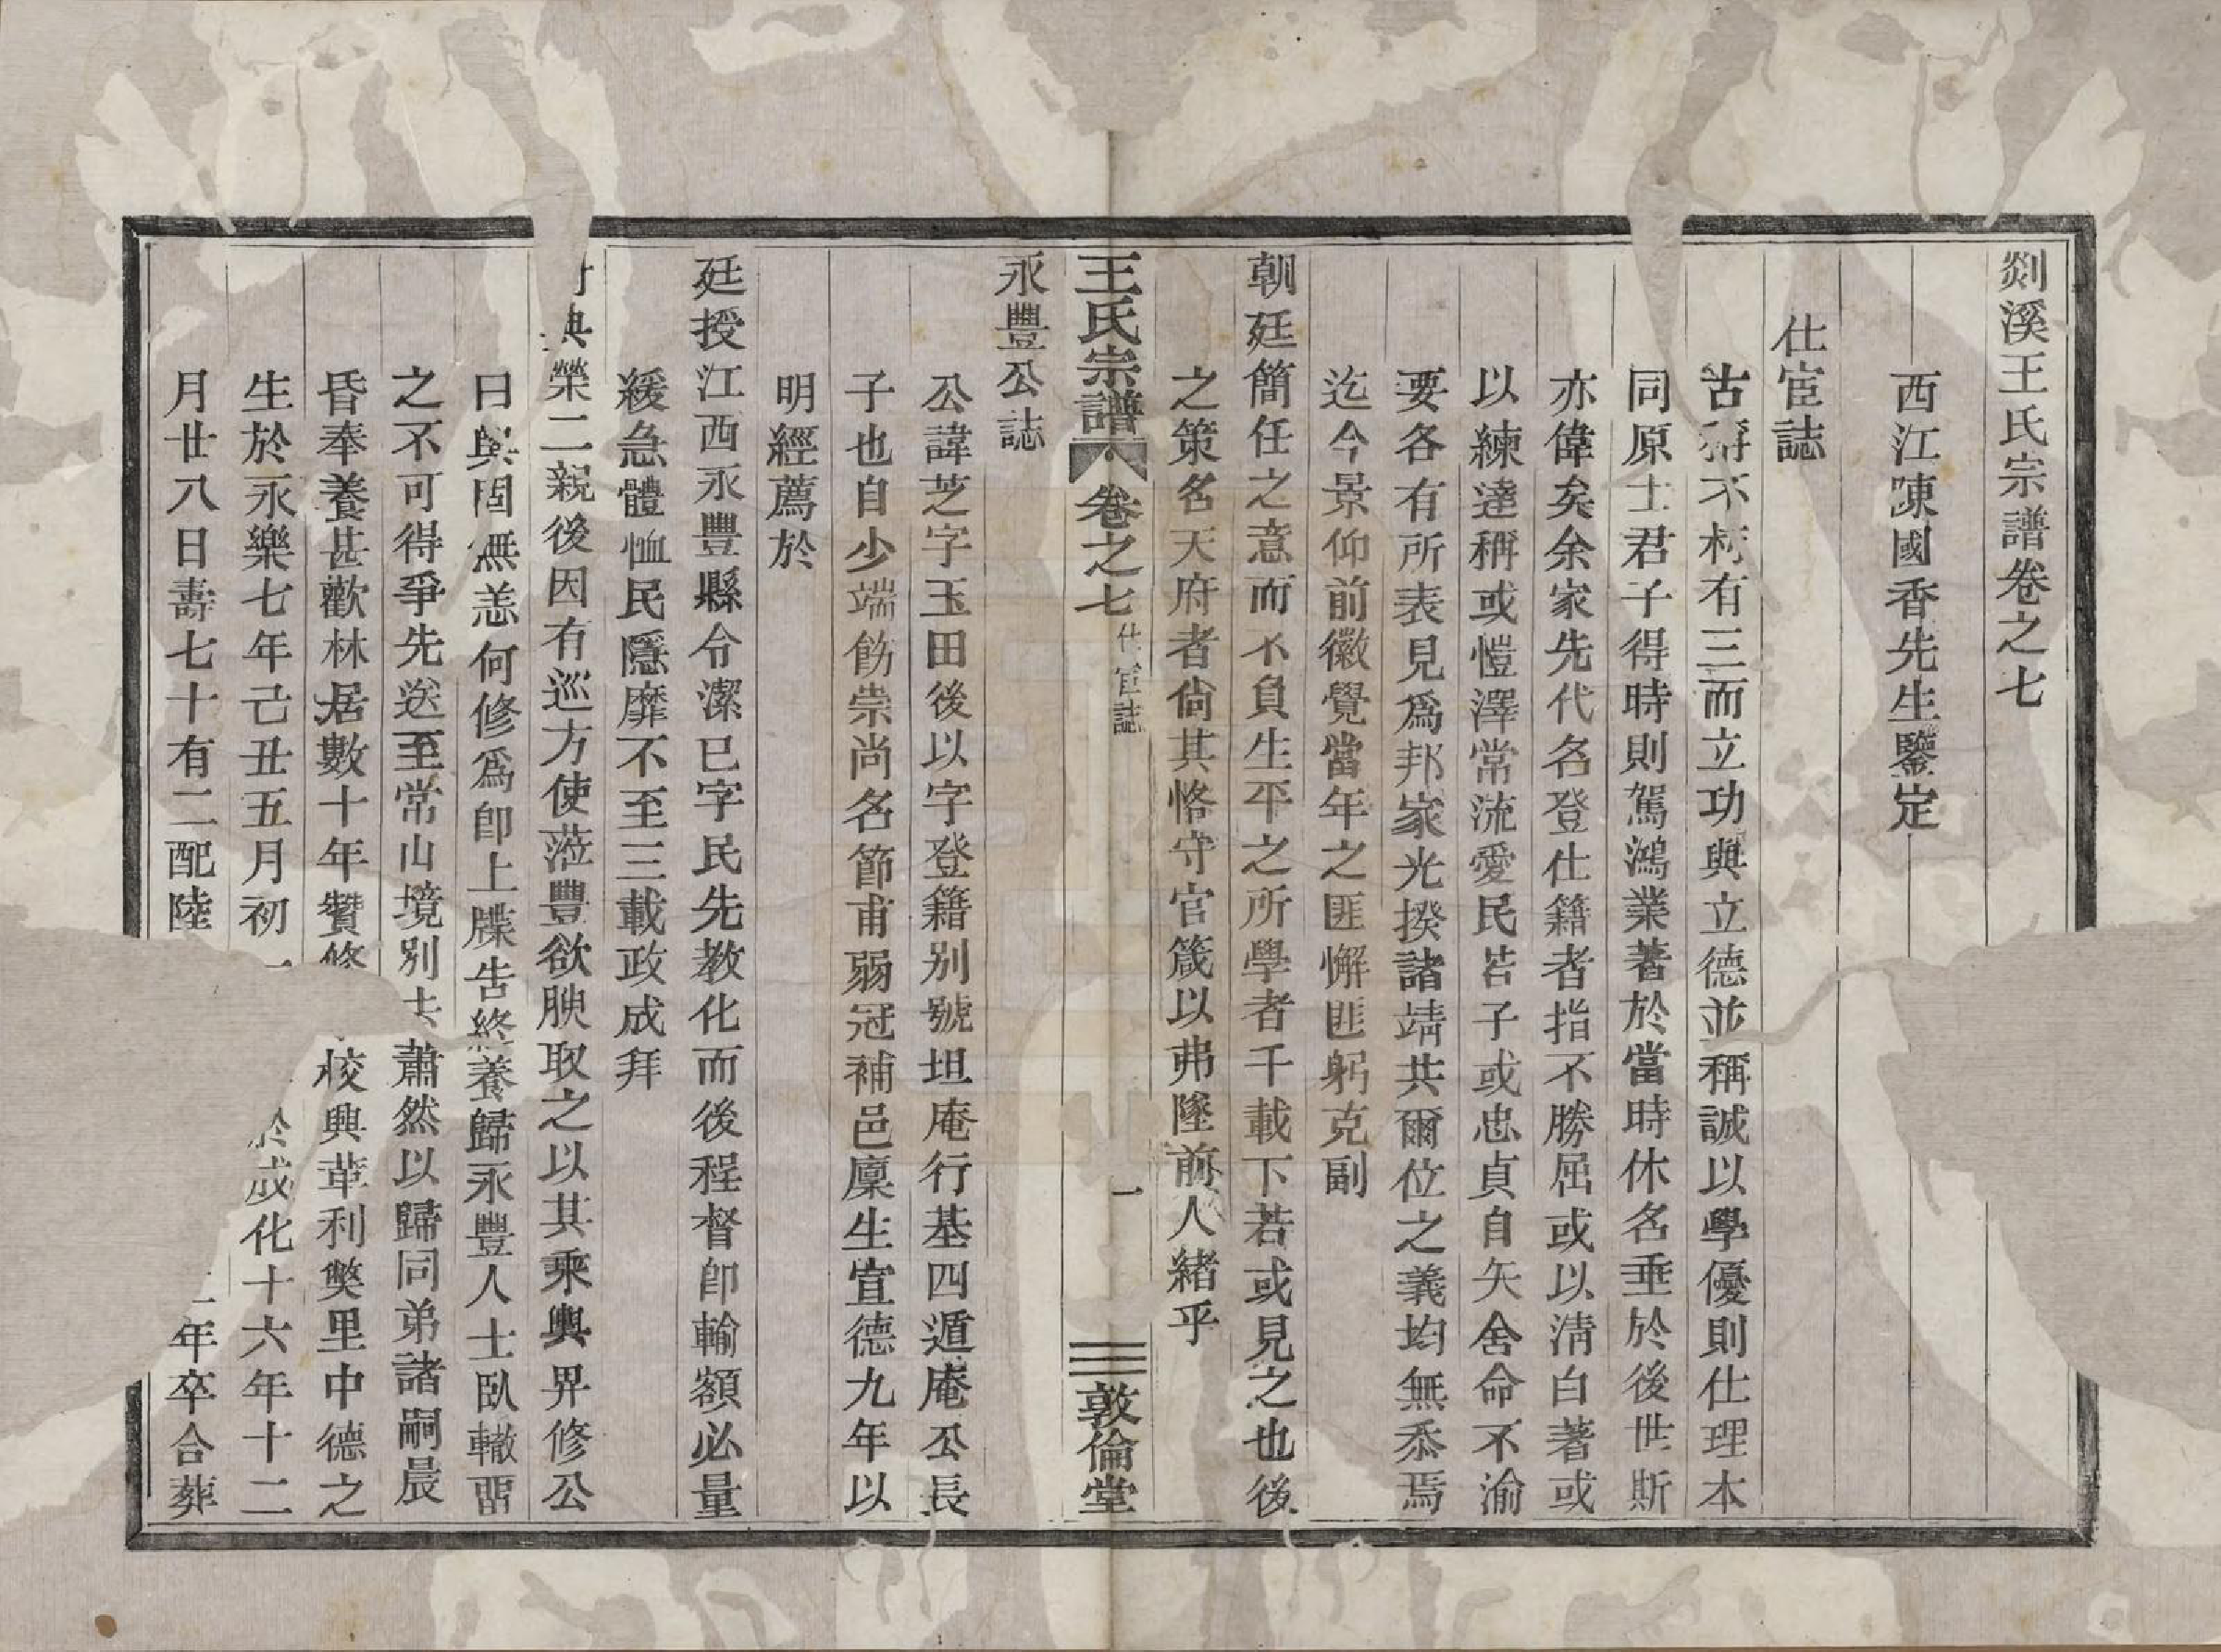 剡溪王氏宗譜卷之七
西江陳國香先生鑒定
仕宦誌
古稱不朽有三而立功與立德並稱誠以學優則仕理本
同原士君子得時則駕鴻業著於當時休名垂於後世斯
亦偉矣余家先代名登仕籍者指不勝屈或以清白著或
以練達稱或愷澤常流愛民若子或忠貞自矢舍命不渝
要各有所表見爲邦家光揆諸靖共爾位之義均無忝焉
迄今景仰前徽覺當年之匪懈匪躬克副
朝廷簡任之意而不負生平之所學者千載下若或見之也後
之策名天府者尙其恪守官箴以弗墜前人緒乎
王氏宗譜 卷之七 仕宦誌 一 敦倫堂
永豐公誌
公諱芝字玉田後以字登籍别號坦庵行基四遁庵公長
子也自少端飭崇尚名節甫弱冠補邑廪生宣德九年以
明經薦於
廷授江西永豐縣令潔已字民先教化而後程督卽輸額必量
緩急體恤民隱靡不至三載政成拜
典榮二親後因有巡方使蒞豐欲腴取之以其乘輿畀修公
曰輿固無恙何修爲卽上牒告終養歸永豐人士臥轍畱
之不可得爭先送至常山境别去蕭然以歸同弟諸嗣晨
昏奉養甚歡林居數十年贊修校興革利獘里中德之
生於永樂七年己丑五月初一於成化十六年十二
月廿八日壽七十有二配陸年卒合葬